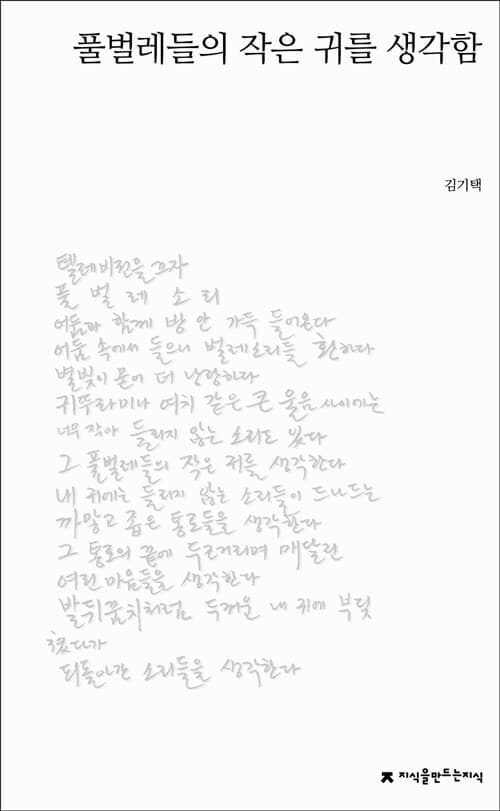 풀벌레들의 작은 귀를 생각함
김기택
텔레비전을 끄자
풀 벌 레 소 리
어둠과 함께 방 안 가득 들어온다
어둠 속에서 들으니 벌레소리들 환하다
별빛이 묻어 더 낭랑하다
귀뚜라미나 여치 같은 큰 울음 사이에는
너무 작아 들리지 않는 소리도 있다
그 풀벌레들의 작은 귀를 생각한다
내 귀에는 들리지 않는 소리들이 드나드는
까맣고 좁은 통로들을 생각한다
그 통로의 끝에 두근거리며 매달린
여린 마음들을 생각한다
발뒤꿈치처럼 두꺼운 내 귀에 부딪
쳤다가
되돌아간 소리들을 생각한다
지식을만드는지식